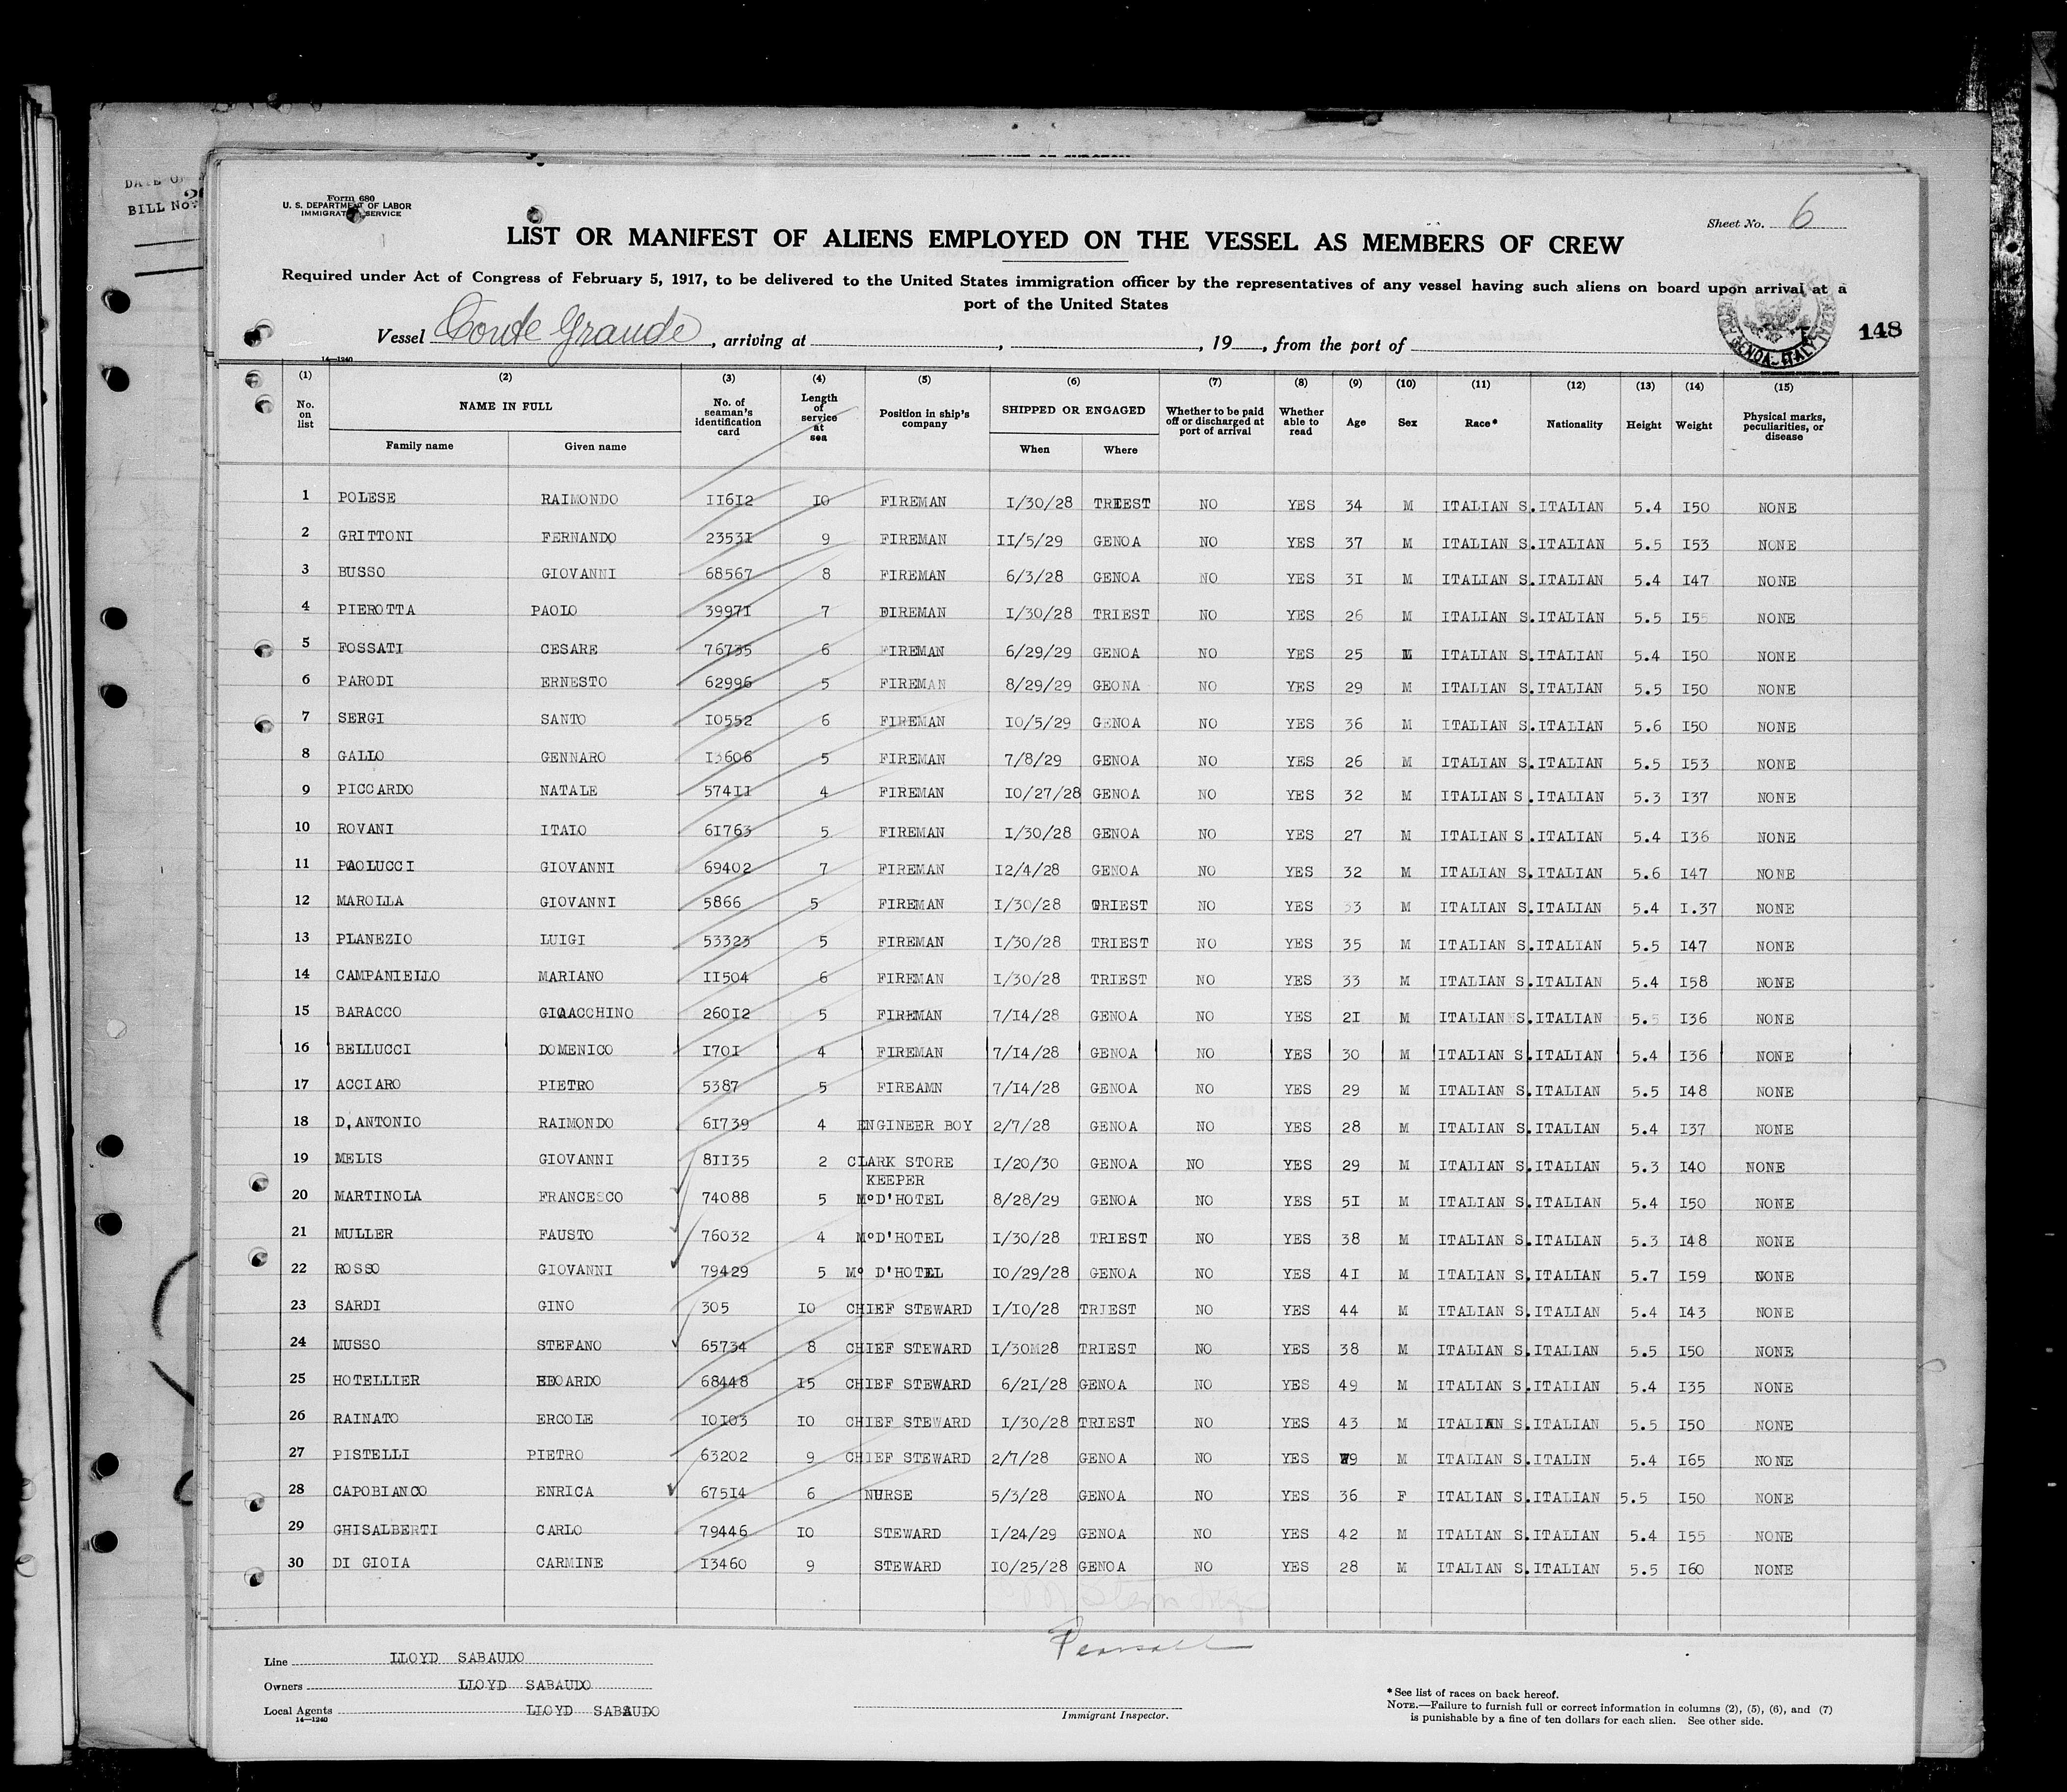 DATE OF
BILL No.
Form 680
U. S. DEPARTMENT OF LABOR
IMMIGRATION SERVICE
Sheet No. 6
LIST OR MANIFEST OF ALIENS EMPLOYED ON THE VESSEL AS MEMBERS OF CREW
Required under Act of Congress of February 5, 1917, to be delivered to the United States immigration officer by the representatives of any vessel having such aliens on board upon arrival at a
port of the United States
Vessel Conte Grande, arriving at , , 19 , from the port of
GENOA-ITALY
148
14—1240
(1) (2) (3) (4) (5) (6) (7) (8) (9) (10) (11) (12) (13) (14) (15)
No. on list NAME IN FULL Family name Given name No. of seaman's identification card Length of service at sea Position in ship's company SHIPPED OR ENGAGED When Where Whether to be paid off or discharged at port of arrival Whether able to read Age Sex Race* Nationality Height Weight Physical marks, peculiarities, or disease
1 POLESE RAIMONDO 11612 10 FIREMAN 1/30/28 TRIEST NO YES 34 M ITALIAN S. ITALIAN 5.4 150 NONE
2 GRITTONI FERNANDO 23531 9 FIREMAN 11/5/29 GENOA NO YES 37 M ITALIAN S. ITALIAN 5.5 153 NONE
3 BUSSO GIOVANNI 68567 8 FIREMAN 6/3/28 GENOA NO YES 31 M ITALIAN S. ITALIAN 5.4 147 NONE
4 PIEROTTA PAOLO 39971 7 FIREMAN 1/30/28 TRIEST NO YES 26 M ITALIAN S. ITALIAN 5.5 155 NONE
5 FOSSATI CESARE 76735 6 FIREMAN 6/29/29 GENOA NO YES 25 M ITALIAN S. ITALIAN 5.4 150 NONE
6 PARODI ERNESTO 62996 5 FIREMAN 8/29/29 GEONA NO YES 29 M ITALIAN S. ITALIAN 5.5 150 NONE
7 SERGI SANTO 10552 6 FIREMAN 10/5/29 GENOA NO YES 36 M ITALIAN S. ITALIAN 5.6 150 NONE
8 GALLO GENNARO 13606 5 FIREMAN 7/8/29 GENOA NO YES 26 M ITALIAN S. ITALIAN 5.5 153 NONE
9 PICCARDO NATALE 57411 4 FIREMAN 10/27/28 GENOA NO YES 32 M ITALIAN S. ITALIAN 5.3 137 NONE
10 ROVANI ITALO 61763 5 FIREMAN 1/30/28 GENOA NO YES 27 M ITALIAN S. ITALIAN 5.4 136 NONE
11 PAOLUCCI GIOVANNI 69402 7 FIREMAN 12/4/28 GENOA NO YES 32 M ITALIAN S. ITALIAN 5.6 147 NONE
12 MAROLLA GIOVANNI 5866 5 FIREMAN 1/30/28 TRIEST NO YES 33 M ITALIAN S. ITALIAN 5.4 1.37 NONE
13 PLANEZIO LUIGI 53323 5 FIREMAN 1/30/28 TRIEST NO YES 35 M ITALIAN S. ITALIAN 5.5 147 NONE
14 CAMPANIELLO MARIANO 11504 6 FIREMAN 1/30/28 TRIEST NO YES 33 M ITALIAN S. ITALIAN 5.4 158 NONE
15 BARACCO GIOACCHINO 26012 5 FIREMAN 7/14/28 GENOA NO YES 21 M ITALIAN S. ITALIAN 5.5 136 NONE
16 BELLUCCI DOMENICO 1701 4 FIREMAN 7/14/28 GENOA NO YES 30 M ITALIAN S. ITALIAN 5.4 136 NONE
17 ACCIARO PIETRO 5387 5 FIREAMN 7/14/28 GENOA NO YES 29 M ITALIAN S. ITALIAN 5.5 148 NONE
18 D,ANTONIO RAIMONDO 61739 4 ENGINEER BOY 2/7/28 GENOA NO YES 28 M ITALIAN S. ITALIAN 5.4 137 NONE
19 MELIS GIOVANNI 81135 2 CLARK STORE KEEPER 1/20/30 GENOA NO YES 29 M ITALIAN S. ITALIAN 5.3 140 NONE
20 MARTINOLA FRANCESCO 74088 5 Mº D'HOTEL 8/28/29 GENOA NO YES 51 M ITALIAN S. ITALIAN 5.4 150 NONE
21 MULLER FAUSTO 76032 4 Mº D'HOTEL 1/30/28 TRIEST NO YES 38 M ITALIAN S. ITALIAN 5.3 148 NONE
22 ROSSO GIOVANNI 79429 5 Mº D'HOTEL 10/29/28 GENOA NO YES 41 M ITALIAN S. ITALIAN 5.7 159 NONE
23 SARDI GINO 305 10 CHIEF STEWARD 1/10/28 TRIEST NO YES 44 M ITALIAN S. ITALIAN 5.4 143 NONE
24 MUSSO STEFANO 65734 8 CHIEF STEWARD 1/30M28 TRIEST NO YES 38 M ITALIAN S. ITALIAN 5.5 150 NONE
25 HOTELLIER EDOARDO 68448 15 CHIEF STEWARD 6/21/28 GENOA NO YES 49 M ITALIAN S. ITALIAN 5.4 135 NONE
26 RAINATO ERCOLE 10103 10 CHIEF STEWARD 1/30/28 TRIEST NO YES 43 M ITALIAN S. ITALIAN 5.5 150 NONE
27 PISTELLI PIETRO 63202 9 CHIEF STEWARD 2/7/28 GENOA NO YES M ITALIAN S. ITALIN 5.4 165 NONE
28 CAPOBIANCO ENRICA 67514 6 NURSE 5/3/28 GENOA NO YES 36 F ITALIAN S. ITALIAN 5.5 150 NONE
29 GHISALBERTI CARLO 79446 10 STEWARD 1/24/29 GENOA NO YES 42 M ITALIAN S. ITALIAN 5.4 155 NONE
30 DI GIOIA CARMINE 13460 9 STEWARD 10/25/28 GENOA NO YES 28 M ITALIAN S. ITALIAN 5.5 160 NONE
Line LLOYD SABAUDO
Owners LLOYD SABAUDO
Local Agents LLOYD SABAUDO
14—1240
Immigrant Inspector.
*See list of races on back hereof.
NOTE.—Failure to furnish full or correct information in columns (2), (5), (6), and (7)
is punishable by a fine of ten dollars for each alien. See other side.